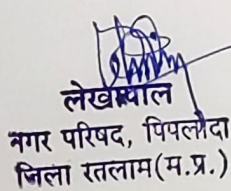 लेखापाल
नगर परिषद, पिपलौदा
जिला रतलाम(म.प्र.)